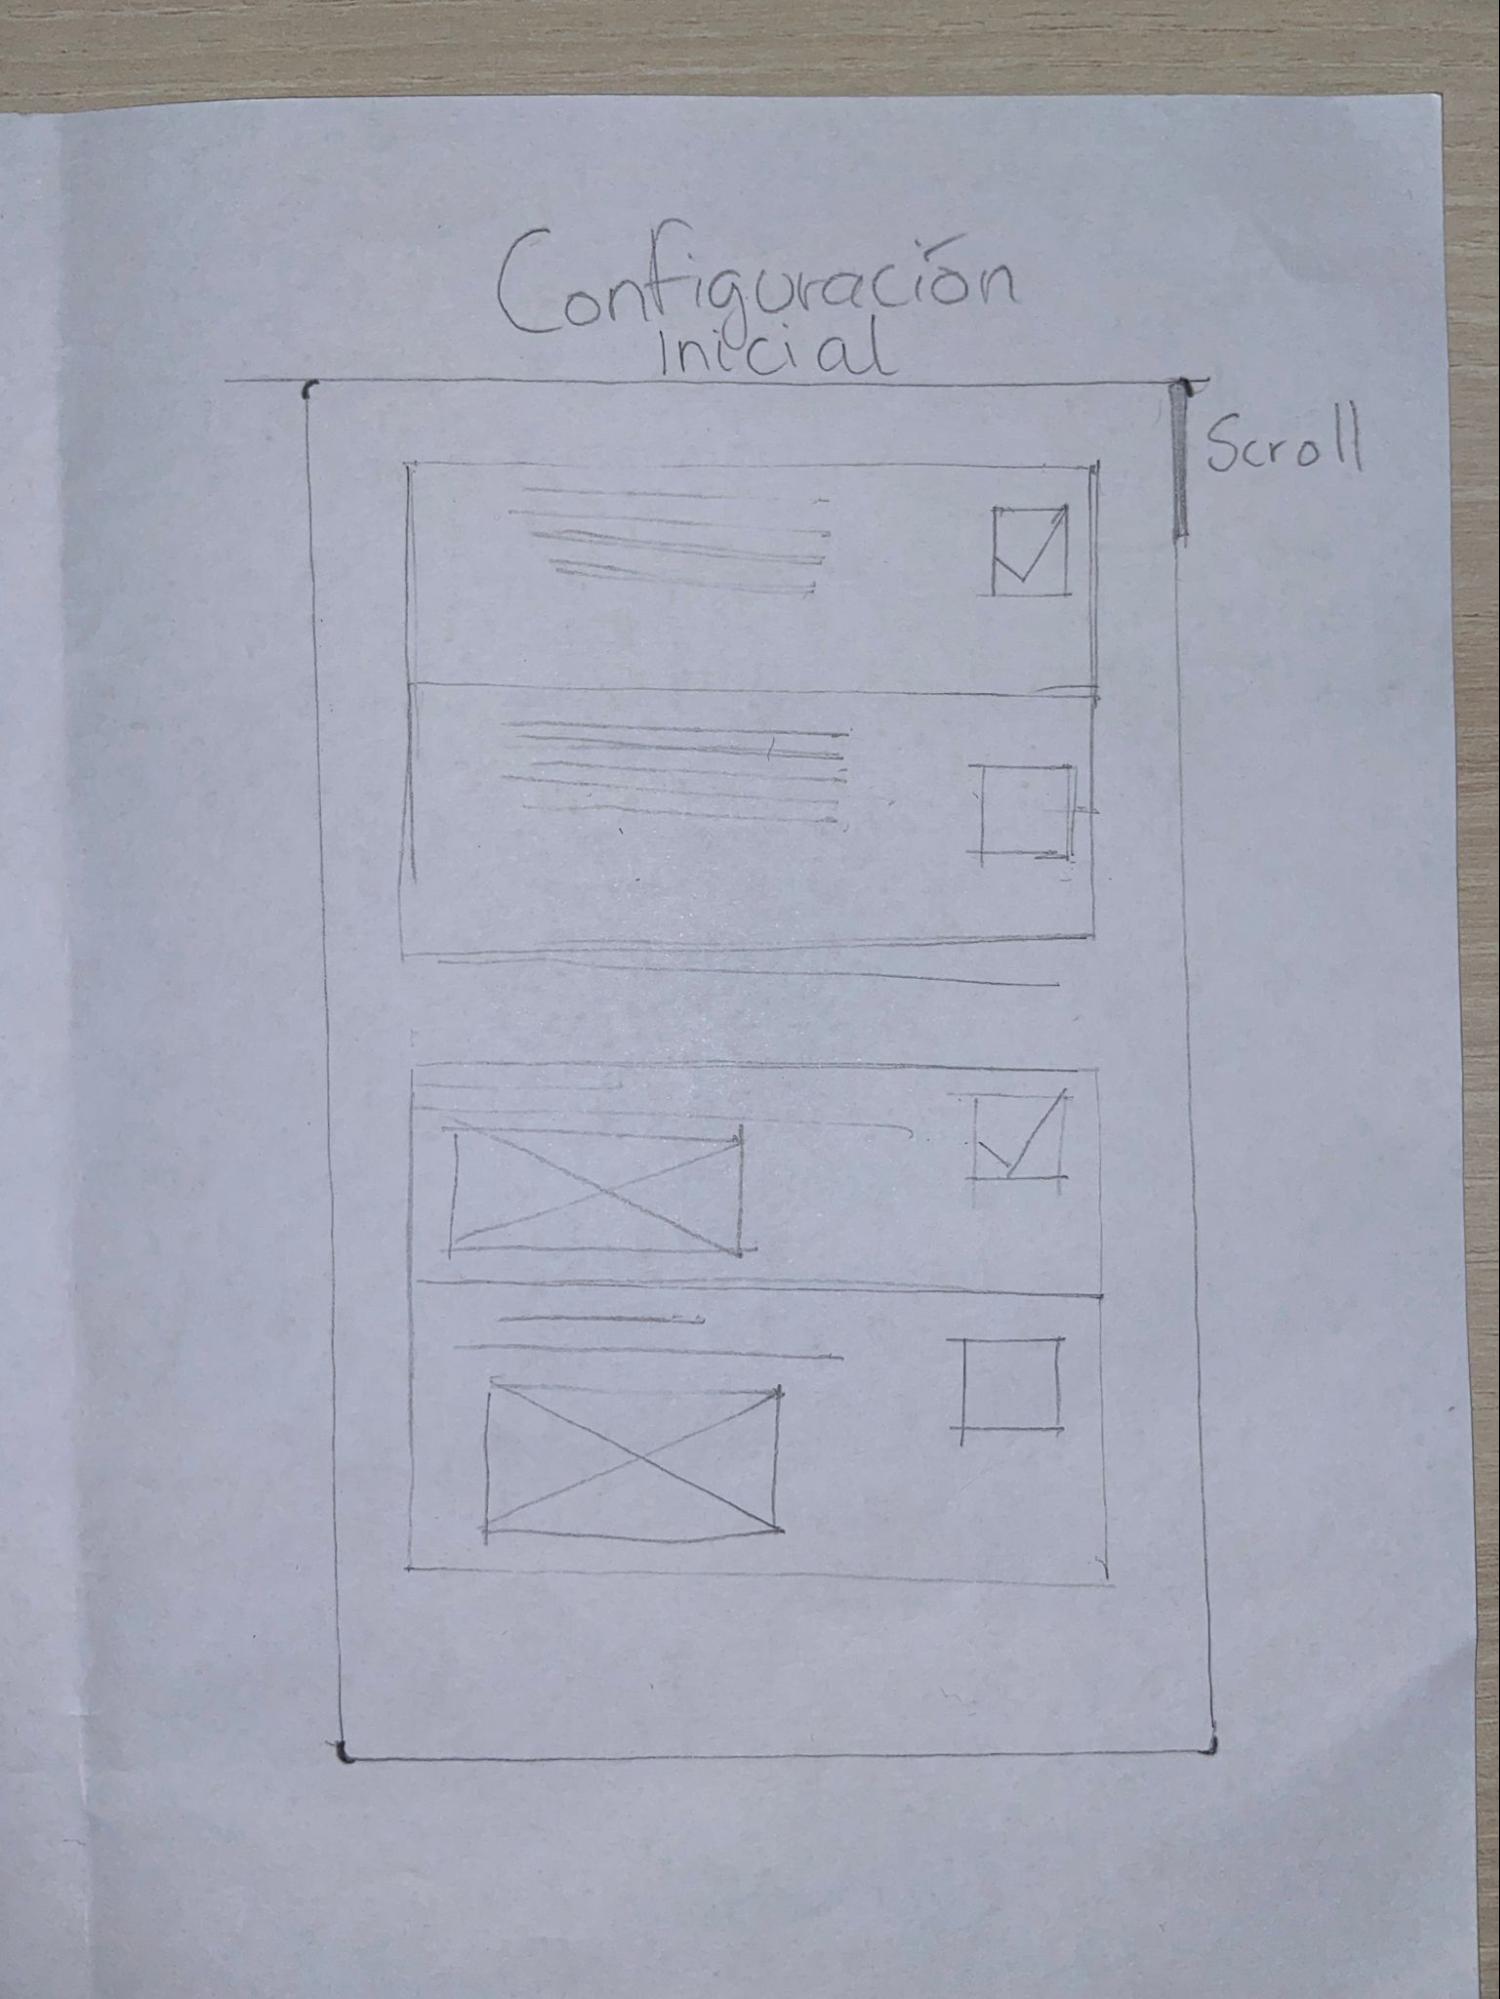 Configuración
Inicial
Scroll